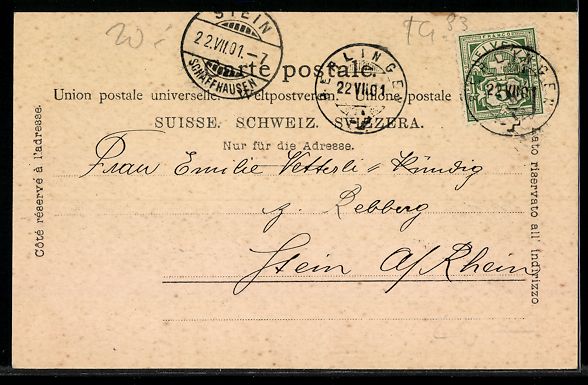 20.-
TG. 83
STEIN
22.VII.01.-7
SCHAFFHAUSEN
Carte postale.
BERLINGEN
22 VII 01
FRANCO
HELVETIA
BERLINGEN
22 VII 01
Union postale universelle. Weltpostverein. Unione postale
SUISSE. SCHWEIZ. SVIZZERA.
Nur für die Adresse.
Côté réservé à l'adresse.
Lato riservato all' indirizzo
Frau Emilie Vetterli-Kündig
z. Rebberg
Stein a/Rhein